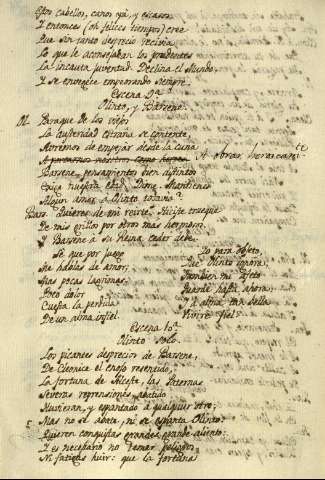 Estos cabellos, canos ya, y escasos
Y entonces (oh felices tiempos) eree
Que sin tanto desprecio recivia
Lo que le aconsejaban los prudentes
La incauta juventud. Declina el Mundo,
Y se envegece empeorando siempre.
Escena 9.a
Olinto, y Barsene.
Ol. Paraque de los viejos
La austeridad estraña se contente,
Avremos de empezar desde la cuna
A obrar
Barsene, pensamientos bien distintos
Exige nuestra edad. Dime, Mantienes
Algun amor a Olinto todavia?
Bars. Quieres de mi reirte. Hiciste trueque
De mis grillos por otros mas hermosos,
Y Barsene a su Reina ceder debe.
Sé que por juego
Me hablas de amor;
Mas pocas lagrimas,
Poco dolor
Cuesta la perdida
De un alma infiel.
Yo para
Que Olinto ignora,
Tambien mi afeto
Guardé hasta ahora;
Y a alma tan bella
Viviré fiel
Escena 10.a
Olinto solo.
Los picantes desprecios de Barsene,
De Cleonice el enojo resentido,
La fortuna de Alceste, las Paternas
Severas reprensiones, abatido
Huvieran, y espantado a qualquier otro;
Mas no se abate, ni se espanta Olinto.
Quieren conquistas grandes grande aliento:
Y es necesario no temer peligros,
Ni fatigas huir: que la fortuna